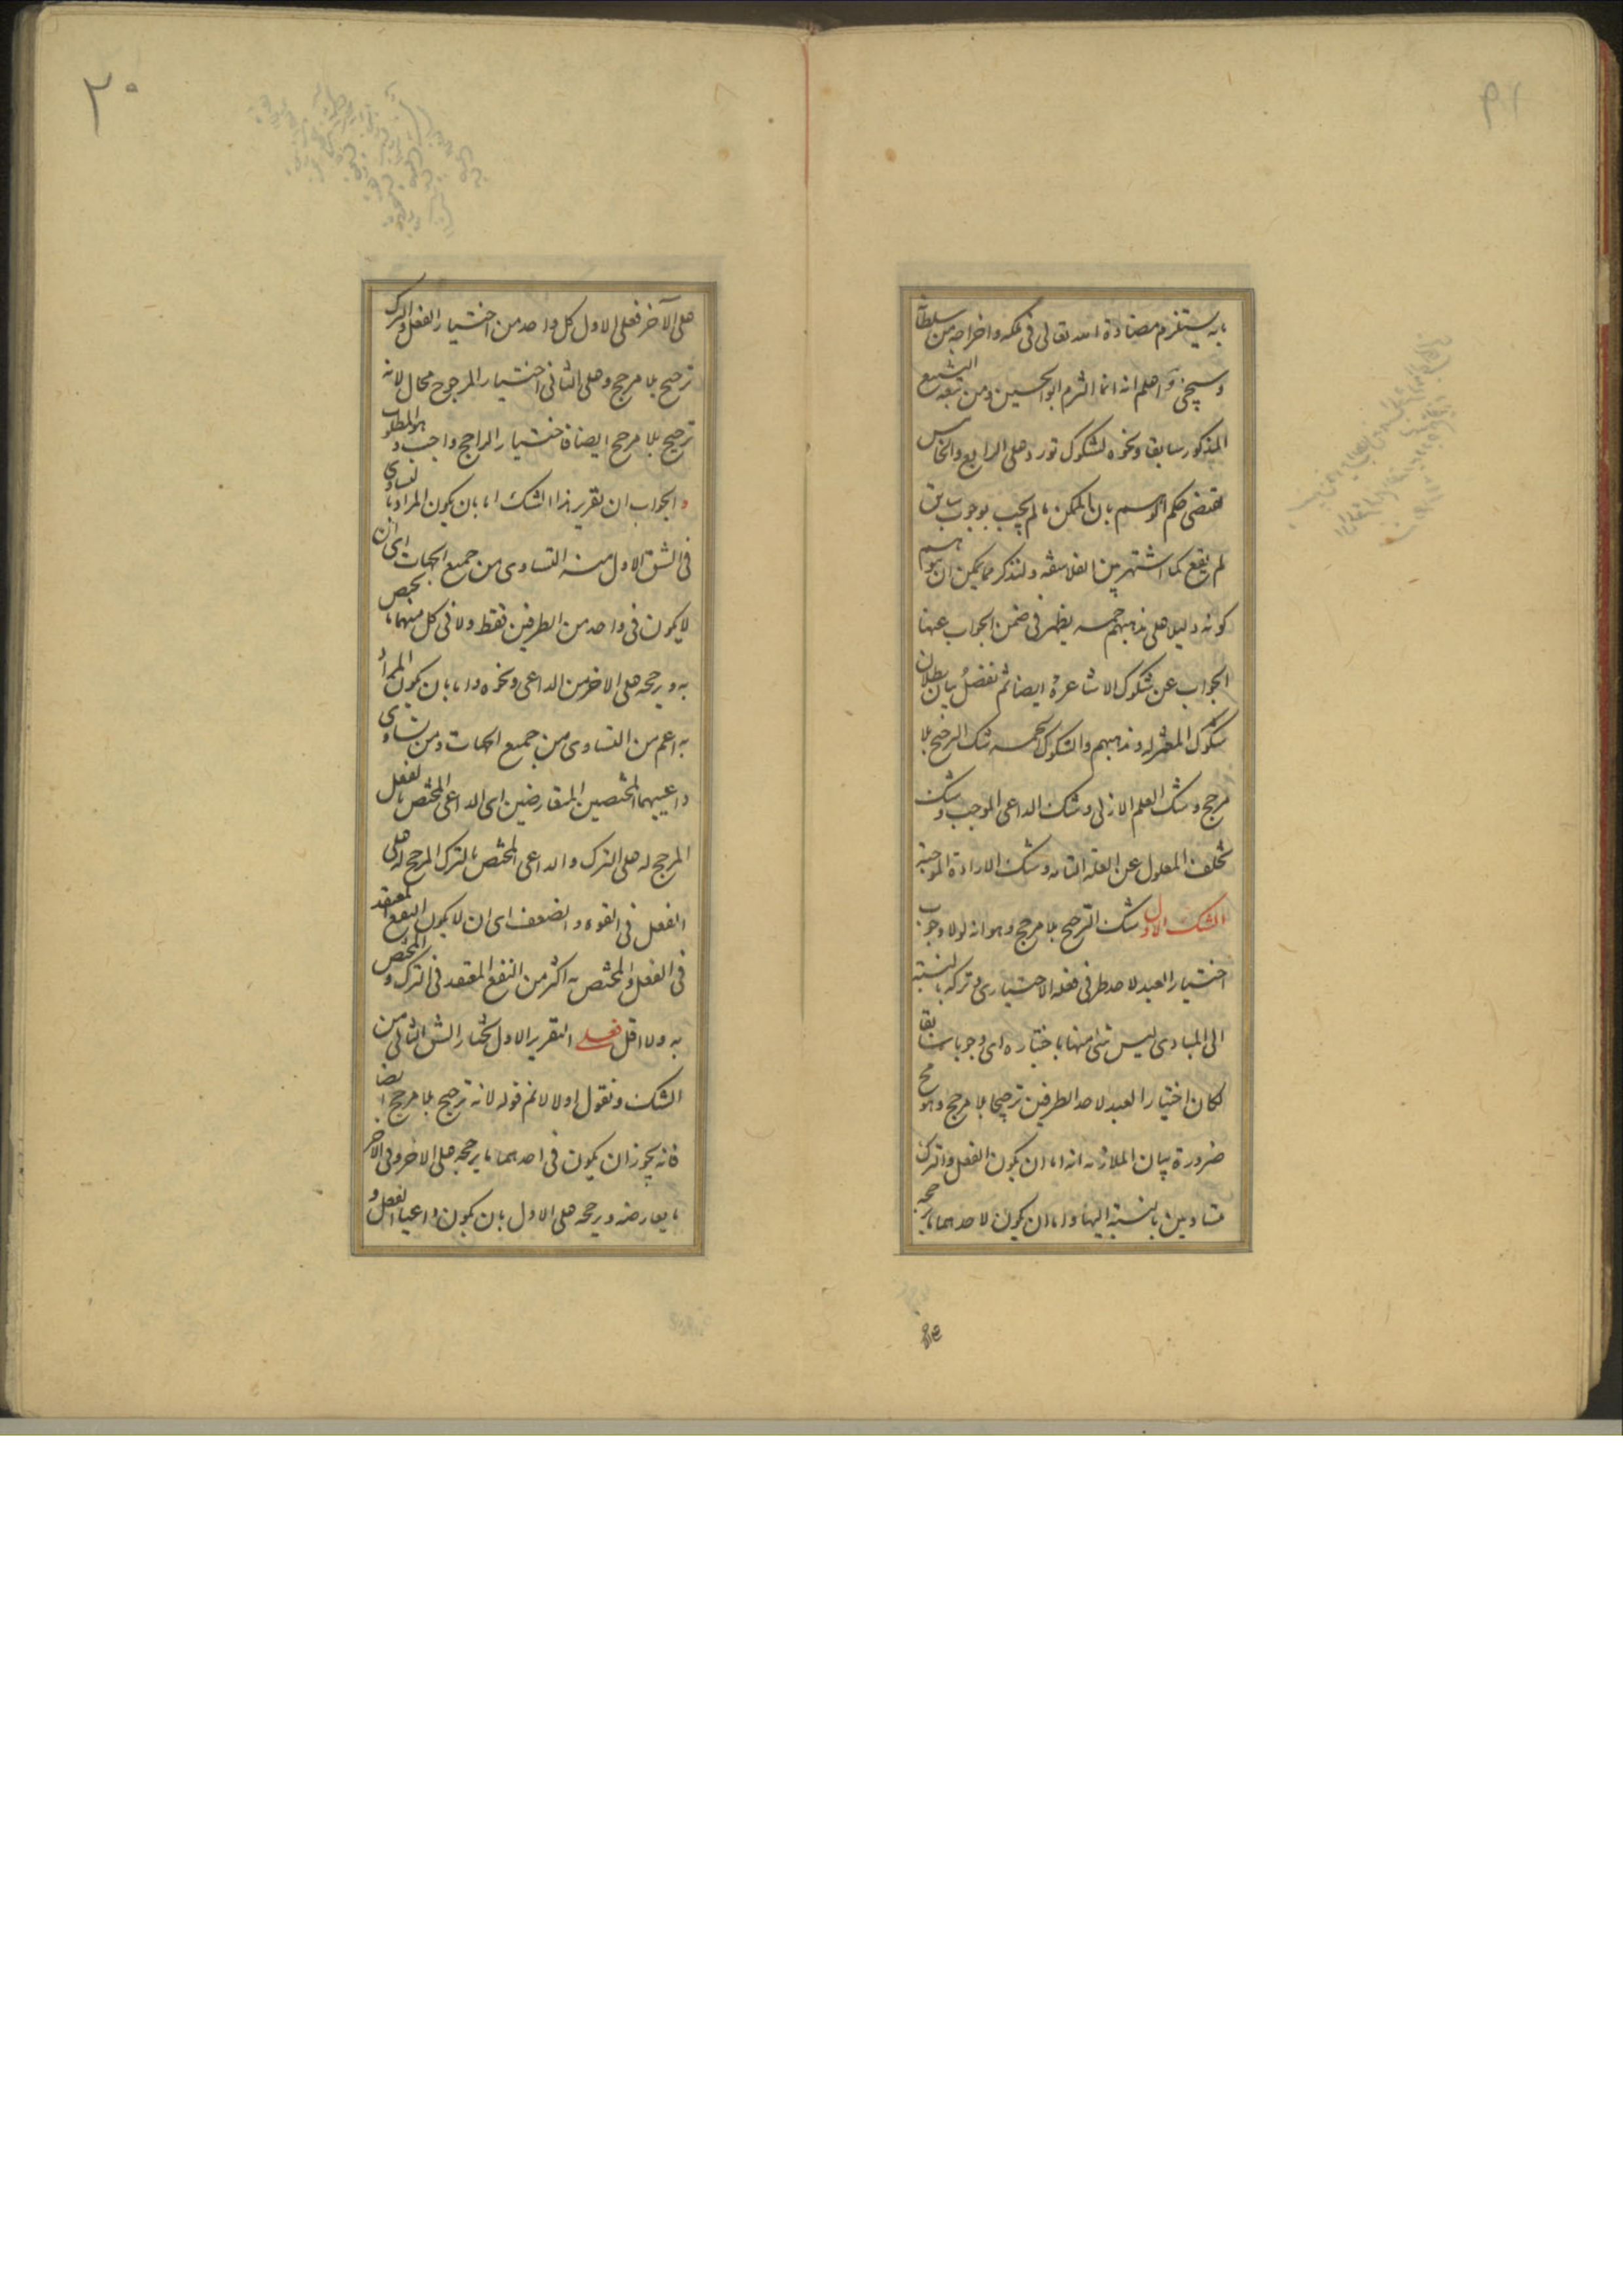 بانه يستلزم مضادة الله تعالى في ملكه واخراجه من سلطانه
وسيجئ واعلم انه انما التزم ابو الحسين ومن تبعه الشنيع
المذكور سابقا ونحوه لشكوك تورد على الرابع والخامس
مقتضى حكم الوهم بان الممكن ما لم يجب بوجوب سابق
لم يقع كما اشتهر بين الفلاسفة ولنذكر مما يمكن ان يتوهم
كونه دليلا على مذهبهم خمسة يظهر في ضمن الجواب عنها
الجواب عن شكوك الاشاعرة ايضا ثم نفصل بيان بطلان
شكوك المعتزلة ومذهبهم والشكوك الخمسة شك الترجيح بلا
مرجح وشك العلم الازلي وشك الداعي الموجب وشك
تخلف المعلول عن العلة التامة وشك الارادة الموجبة
الشك الاول شك الترجيح بلا مرجح وهو انه لولا وجوب
اختيار العبد لاحد طرفي فعله الاختياري وتركه بالنسبة
الى المبادي ليس شئ منها باختياره اي وجوبا سابقا
لكان اختيار العبد لاحد الطرفين ترجيحا بلا مرجح وهو مح
ضرورة بيان الملازمة انه اما ان يكون الفعل والترك
متساويين بالنسبة اليها واما ان يكون لاحدهما ما يرجحه
على الآخر فعلى الاول كل واحد من اختيار الفعل والترك
ترجيح بلا مرجح وعلى الثاني اختيار المرجوح محال لانه
ترجيح بلا مرجح ايضا فاختيار الراجح واجب وهو المطلوب
والجواب ان تقرير هذا الشك اما بان يكون المراد بالتساوي
في الشق الاول منه التساوي من جميع الجهات اي ان
لا يكون في واحد من الطرفين فقط ولا في كل منهما ما يختص
به ويرجحه على الاخر من الداعي ونحوه واما بان يكون المراد
به اعم من التساوي من جميع الجهات ومن تساوي
داعييهما المختصين المتعارضين اي الداعي المختص بالفعل
المرجح له على الترك والداعي المختص بالترك المرجح له على
الفعل في القوة والضعف اي ان لا يكون النفع المعتقد
في الفعل والمختص به اكثر من النفع المعتقد في الترك والمختص
به ولا اقل فعلى التقرير الاول نختار الشق الثاني من
الشك ونقول اولا لا نم قوله لانه ترجيح بلا مرجح ايضا
فانه يجوز ان يكون في احدهما ما يرجحه على الاخر وفي الاخر
ما يعارضه ويرجحه على الاول بان يكون داعيا الفعل و